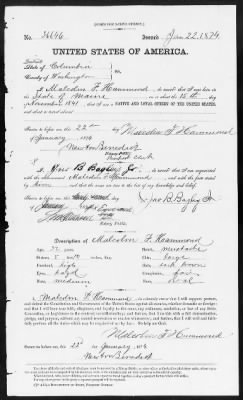 [FORM FOR NATIVE CITIZEN.]
No. 36646 Issued Jan 22, 1874
UNITED STATES OF AMERICA.
District
State of Columbia
County of Washington } ss.
I, Malcolm F. Hammond, do swear that I was born in the
State of Maine, on or about the 15th day
of November 1841, that I am a NATIVE AND LOYAL CITIZEN OF THE UNITED STATES,
and about to travel abroad.
Sworn to before me, this 22d day
of January, 1874
Malcolm F Hammond
Newton Benedict
Passport clerk
I, Jno B. Bagley Jr., do swear that I am acquainted
with the above-named Malcolm F Hammond, and with the facts stated
by him and that the same are true to the best of my knowledge and belief.
Sworn to before me, this
day
of January
Jno B. Bagley Jr
Notary Public
Description of Malcolm F. Hammond
Age:
Mouth: mustache
Stature: 5
Chin: large
Forehead: high
Hair: dark brown
Eyes:
Complexion: fair
Nose: medium
Face: oval
I, Malcolm F. Hammond, do solemnly swear that I will support, protect,
and defend the Constitution and Government of the United States against all enemies, whether domestic or foreign;
and that I will bear true faith, allegiance, and loyalty to the same, any ordinance, resolution, or law of any State,
Convention, or Legislature to the contrary notwithstanding; and further, that I do this with a full determination,
pledge, and purpose, without any mental reservation or evasion whatsoever; and further, that I will well and faithfully
perform all the duties which may be required of me by law. So help me God.
Malcolm F Hammond
Sworn to before me, this 22d
day of January 1874
Newton Benedict